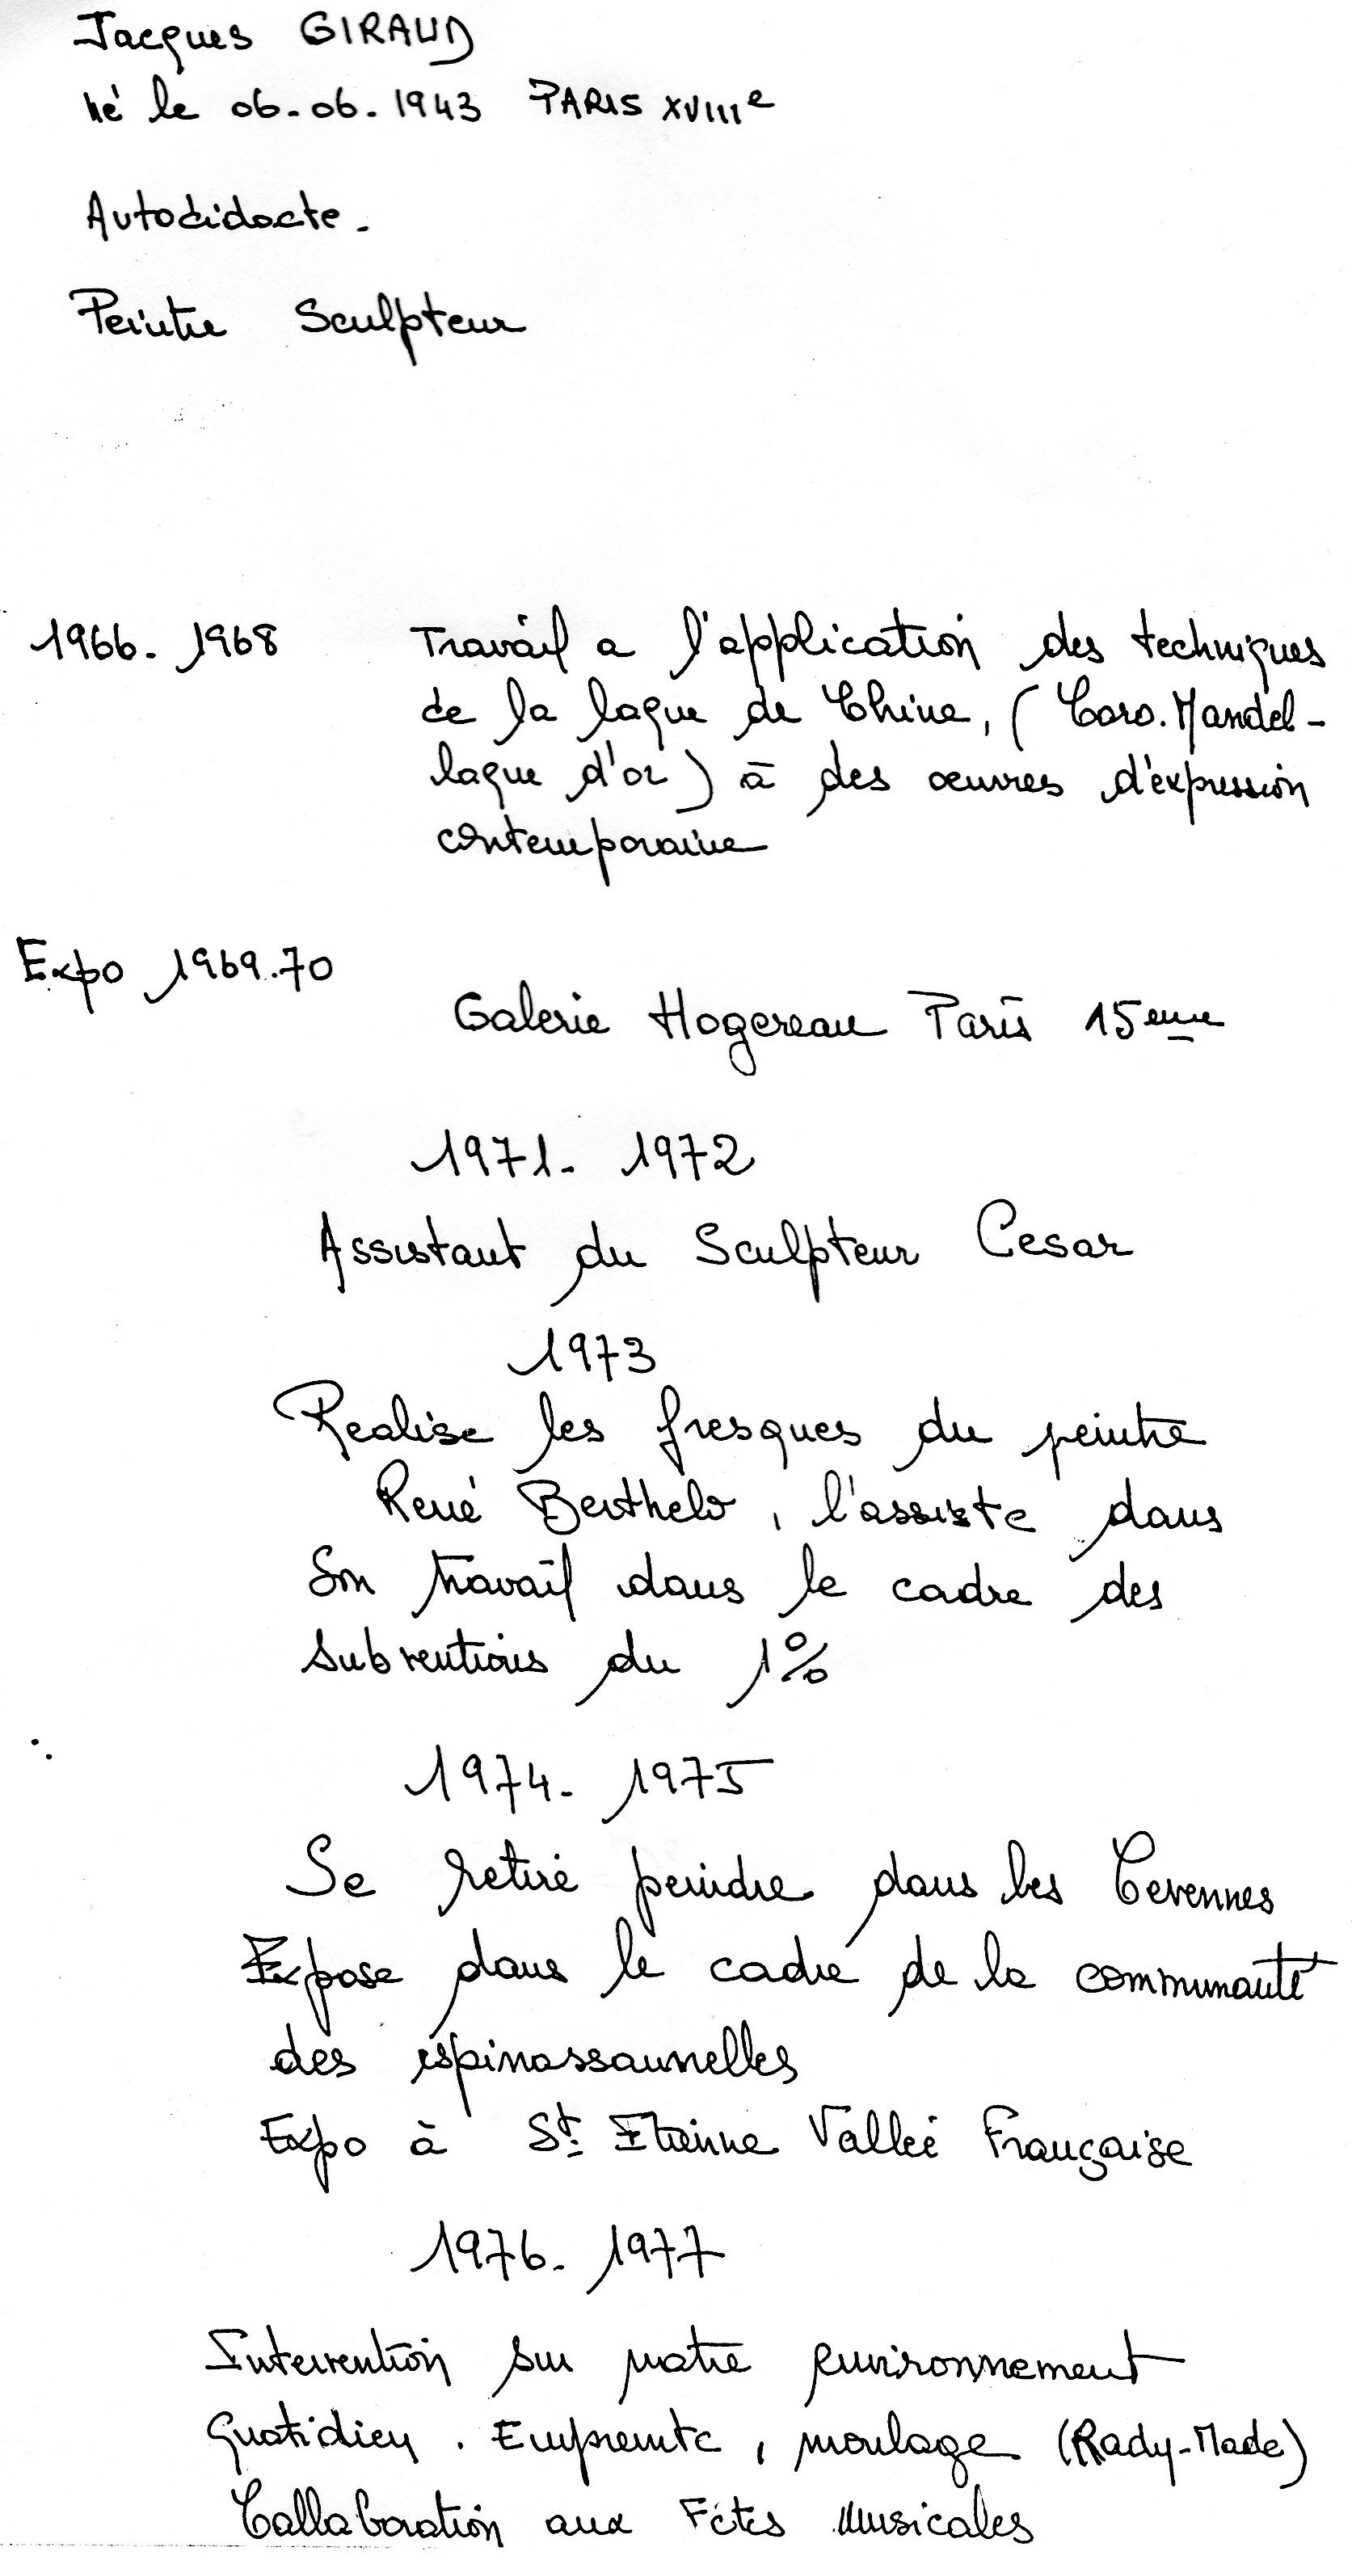 Jacques GIRAUD
né le 06-06-1943 PARIS XVIIIe
Autodidacte.
Peintre Sculpteur
1966-1968 Travail a l'application des techniques
de la laque de Chine, (Coro.Mandel-
laque d'or) à des œuvres d'expression
contemporaine
Expo 1969.70
Galerie Hogereau Paris 15eme
1971-1972
Assistant du Sculpteur Cesar
1973
Realise les fresques du peintre
René Berthelo, l'assiste dans
Son travail dans le cadre des
subventions du 1%
1974-1975
Se retire peindre dans les Cevennes
Expose dans le cadre de la communauté
des espinassaunelles
Expo à St. Etienne Vallée Française
1976-1977
Intervention sur notre environnement
quotidien. Empreinte, moulage (Rady-Made)
Collaboration aux Fêtes Musicales